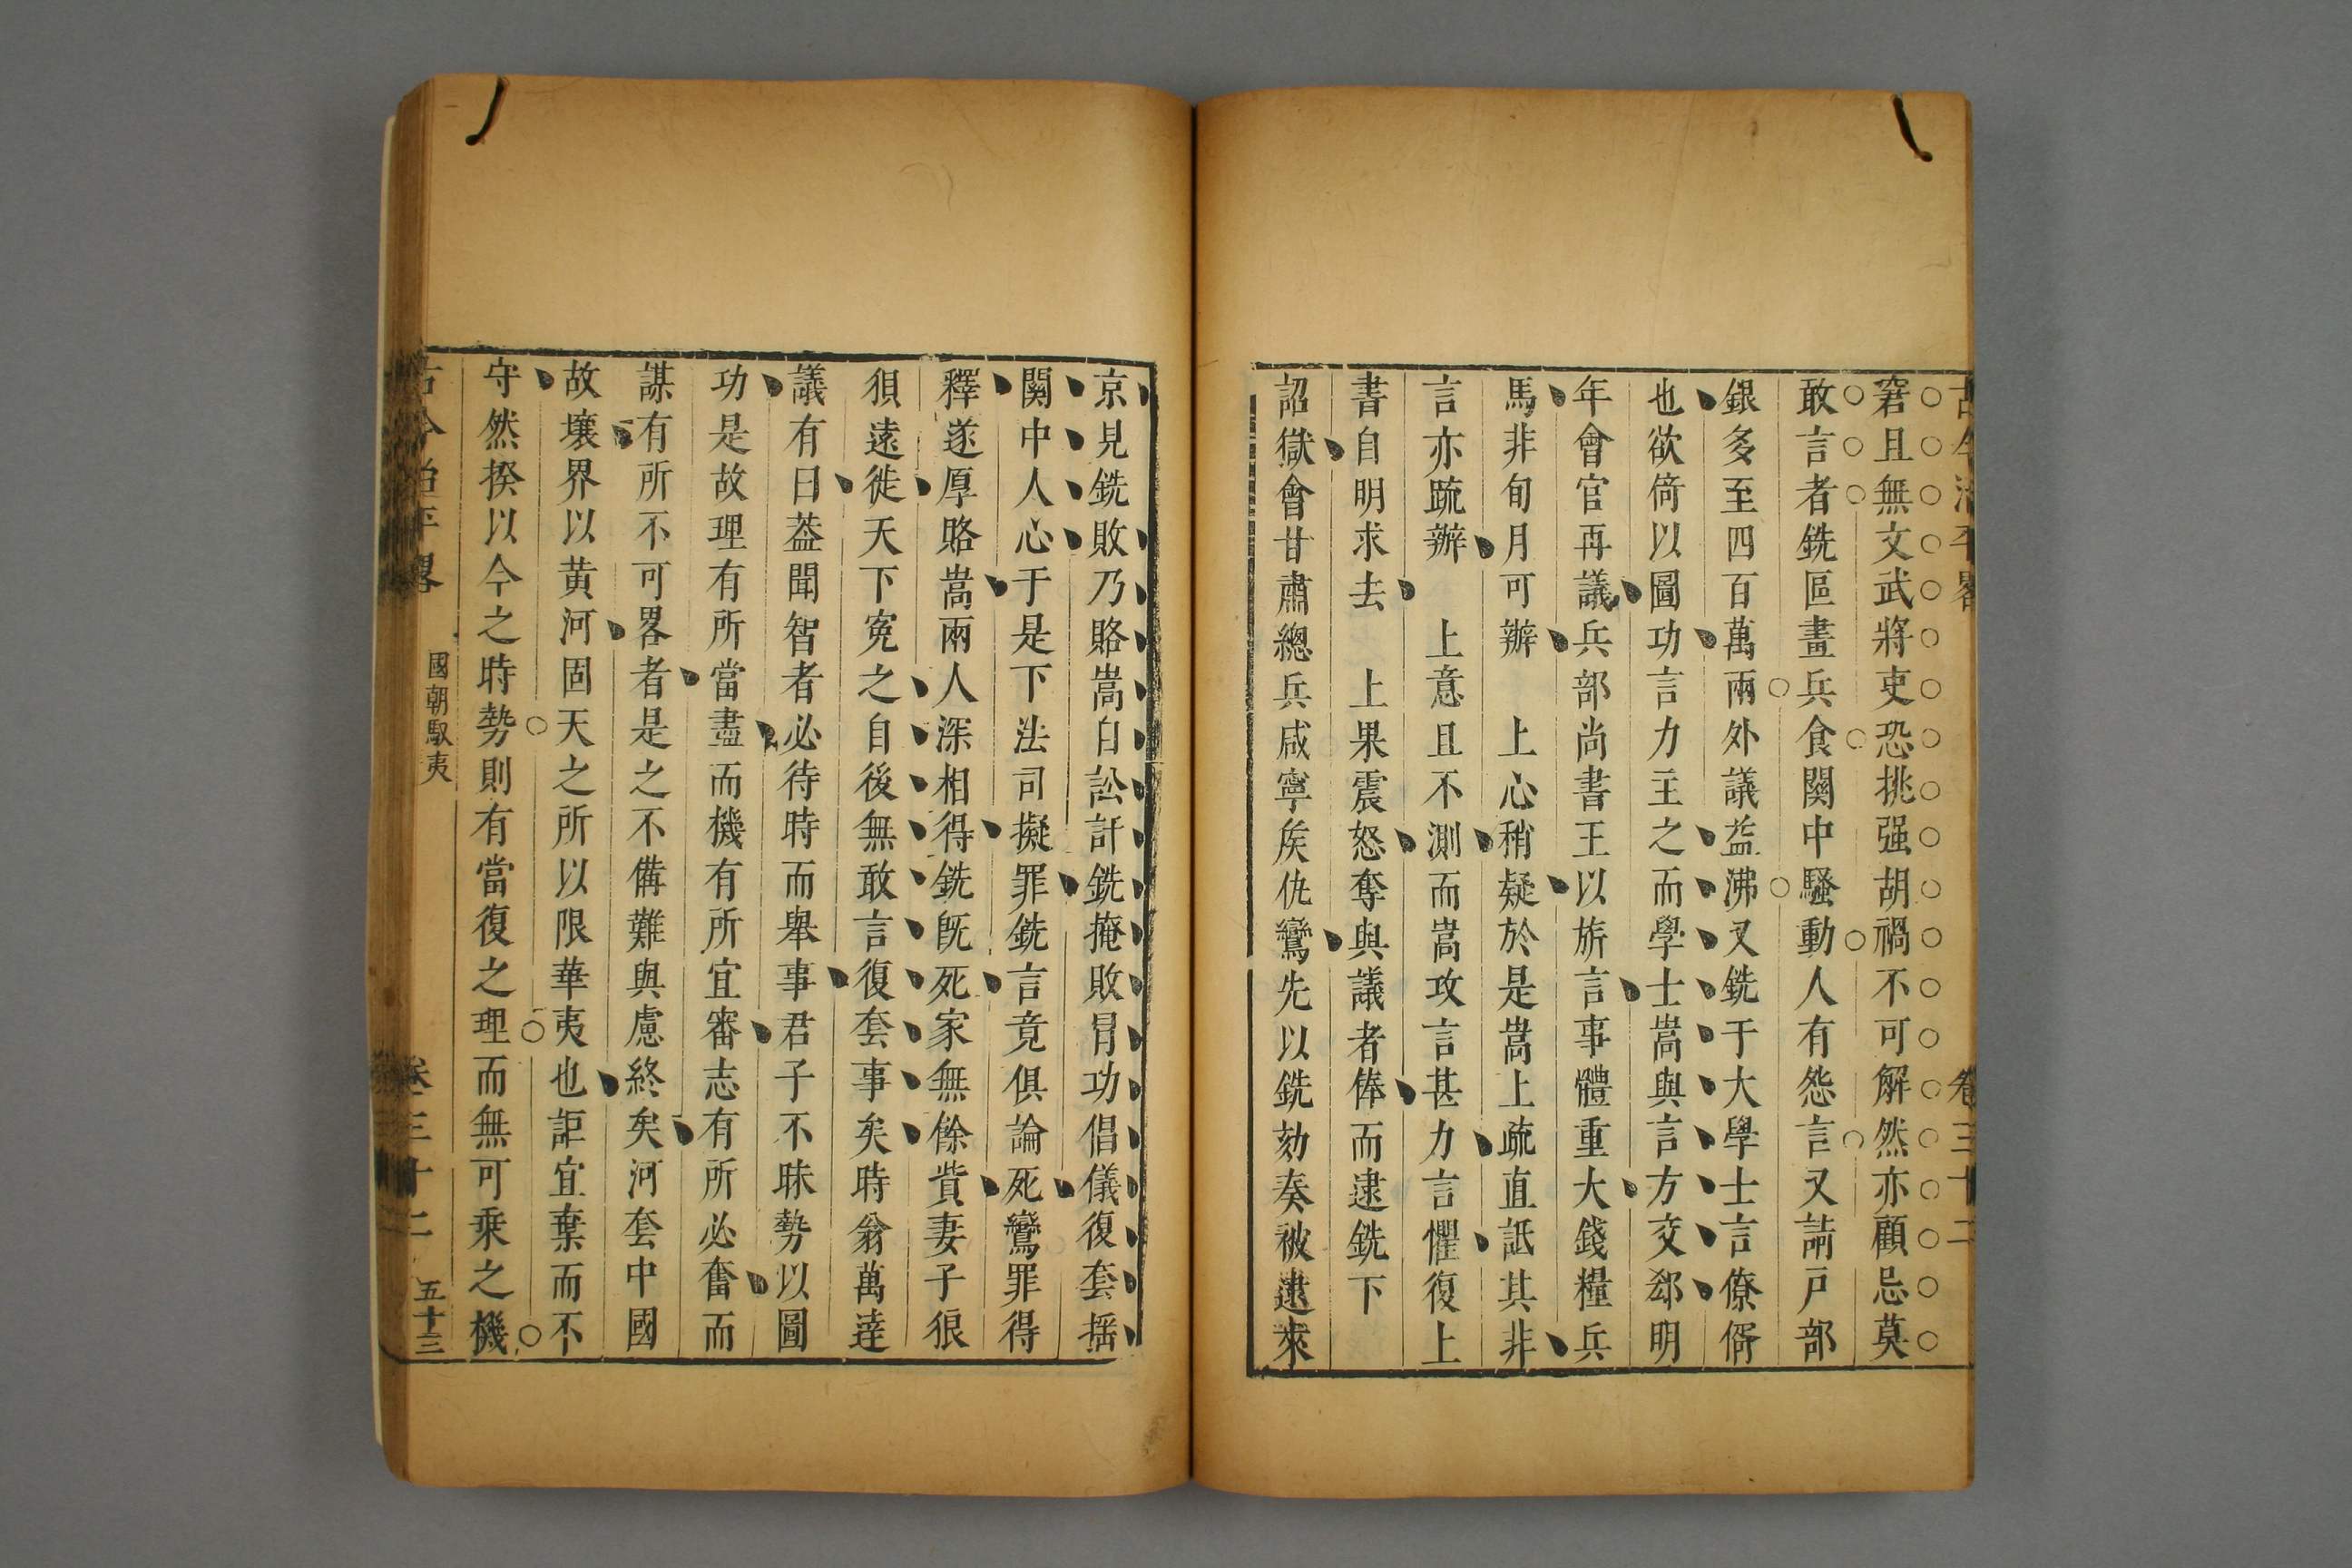 古今治平畧
卷三十二
窘且無文武將吏恐挑强胡禍不可解然亦顧忌莫
敢言者銑區畫兵食關中騷動人有怨言又請戸部
銀多至四百萬兩外議益沸又銑于大學士言僚僑
也欲倚以圖功言力主之而學士嵩與言方交郄明
年會官再議兵部尚書王以旂言事體重大錢糧兵
馬非旬月可辦 上心稍疑於是嵩上疏直詆其非
言亦疏辦 上意且不測而嵩攻言甚力言懼復上
書自明求去 上果震怒奪與議者俸而逮銑下
詔獄會甘肅總兵咸寧矦仇鸞先以銑劾奏被逮來
京見銑敗乃賂嵩白訟訐銑掩敗冒功倡儀復套搖
關中人心于是下法司擬罪銑言竟俱論死鸞罪得
釋遂厚賂嵩兩人深相得銑旣死家無餘貲妻子狠
狽遠徙天下寃之自後無敢言復套事矣時翁萬達
議有曰葢聞智者必待時而舉事君子不昧勢以圖
功是故理有所當盡而機有所宜審志有所必奮而
謀有所不可畧者是之不備難與慮終矣河套中國
故壤界以黄河固天之所以限華夷也詎宜棄而不
守然揆以今之時勢則有當復之理而無可乘之機
古今治平畧
國朝馭夷
卷三十二
五十三